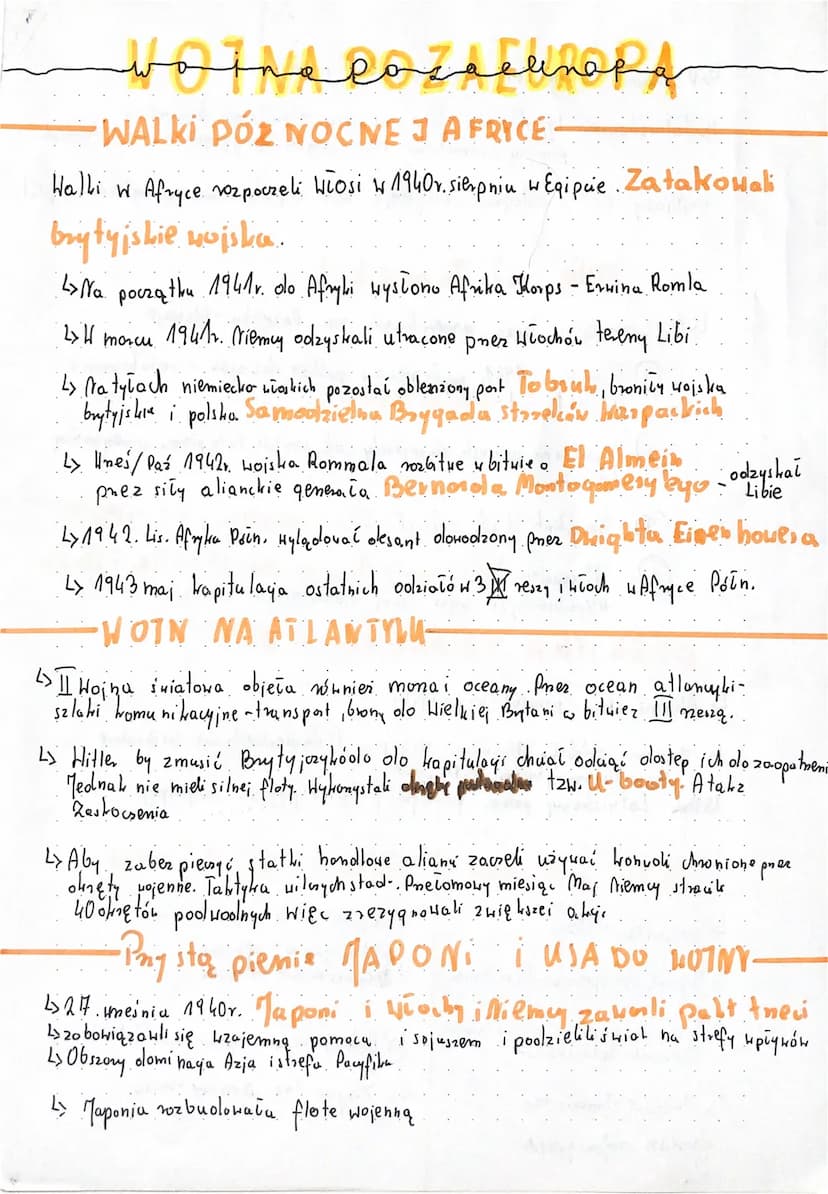 WOJNA POZAEUROPĄ
wojna pozaeuropą
WALKi PÓŁNOCNEJ AFRYCE
Walki w Afryce rozpoczeli Włosi w 1940r. sierpniu w Egipcie. Zatakowali
brytyjskie wojska.
↳ Na początku 1941r. do Afryki wysłono Afrika Korps - Erwina Romla
↳ W marcu 1941r. Niemcy odzyskali utracone przez Włochów tereny Libi
↳ Na tyłach niemiecko włoskich pozostał oblężiony port Tobruk, broniły wojska
brytyjskie i polska Samodzielna Brygada strzelców karpackich
↳ Wrześ/Paź 1942r. wojska Rommala rozbitye w bitwie o El Almein
przez siły alianckie generała Bernarda Montogomery'ego - odzyskał
Libie
↳ 1942. Lis. Afryka Półn. wylądował desant dowodzony przez Dwighta Eisenhowera
↳ 1943 maj kapitulacja ostatnich oddziałów 3 reszy i Włoch w Afryce Półn.
WOJN NA ATLANTYKU
↳ II Wojna światowa objeła również morza i oceany. Przez ocean atlantycki-
szlaki komunikacyjne - transport, brony do Wielkiej Brytani w bitwie z III rzeszą.
↳ Hitler by zmusić do kapitulacji chciał odciąć dostęp ich do zaopatrzeni
Jednak nie mieli silnej floty. Wykorzystali tzw. U-booty. Atak z
Zaskoczenia
↳ Aby zabezpieczyć statki handlowe alianci zaczeli używać konwoli chronione przez
okręty wojenne. Taktyka wilczych stad-. Przełomowy miesiąc Maj Niemcy stracili
40 okrętów podwodnych więc zrezygnowali z większej akcji
Przystąpienie JAPONi i USA DO WOJNY
↳ 27. września 1940r. Japoni i włochy i Niemcy zawarli pakt trzeci
↳ zobowiązali się wzajemną pomocą i sojuszem i podzielili świat na strefy wpływów
↳ Obszary dominacja Azja i strefa Pacyfiku
↳ Japonia rozbudowała flote wojenną